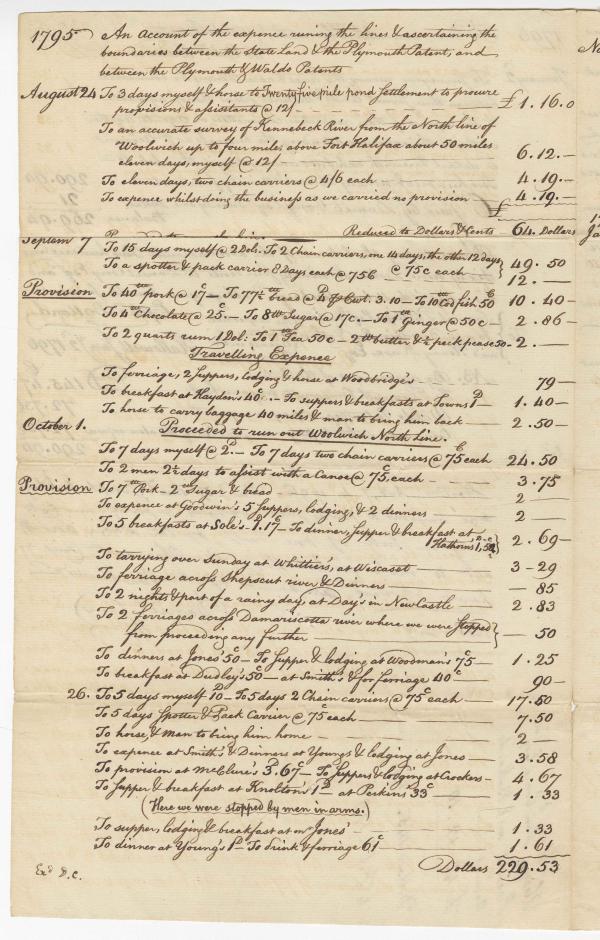 1795 An Account of the expence runing the lines & ascertaining the
boundaries between the State Land & the Plymouth Patent, and
between the Plymouth & Waldo Patents
August 24 To 3 days myself & horse to Twenty five mile pond settlement to procure
provisions & assistants @ 12/ £1.16.0
To an accurate survey of Kennebeck River from the North line of
Woolwich up to four miles above Fort Halifax about 50 miles
eleven days, myself @ 12/ 6.12.—
To eleven days, two chain carriers @ 4/6 each 4.19.—
To expence whilst doing the business as we carried no provision 4.19.—
£
Reduced to Dollars & Cents 64. Dollars
Septem 7
To 15 days myself @ 2 Dol: To 2 Chain carriers, one 14 days, the other 12 days
@ 75c each } 49.50
To a spotter & pack carrier 8 Days each @ 75c 12.—
Provision To 40 lb pork @ 17c — To 77½ lb bread @ 4D pr Cwt. 3.10 — To 10 lb Codfish 50c 10.40—
To 4 lb Chocolate @ 25. — To 8 lb Sugar @ 17c. — To 1 lb Ginger @ 50c — 2.86—
To 2 quarts rum 1 Dol: To 1 lb Tea 50c — 2 lb butter & ½ peck pease 50 — 2.—
Travelling Expence
To ferriage, 2 suppers, lodging & horse at Woodbridge's 79—
To breakfast at Haydon's 40c. — To suppers & breakfasts at Towns 1D 1.40—
To horse to carry baggage 40 miles & man to bring him back 2.50—
October 1. Proceeded to run out Woolwich North Line.
To 7 days myself @ 2D. — To 7 days two chain carriers @ 75c each 24.50
To 2 men 2½ days to assist with a Canoe @ 75c. each 3.75
Provision To 7 lb Pork — 2 lb Sugar & bread 2—
To expence at Goodwin's 5 suppers, lodging, & 2 dinners 2—
To 5 breakfasts at Sole's — 1D.17c — To dinner, supper & breakfast at
Hathorn's 1,52 } 2.69—
To tarrying over Sunday at Whittier's, at Wiscaset 3—29
To ferriage across Shepscut river & Dinners — 85
To 2 nights & part of a rainy day, at Day's in New Castle 2.83
To 2 ferriages across Damariscotta river where we were stopped
from proceeding any further } .50
To dinners at Jones' 50c — To supper & lodging at Woodman's 75 — 1.25
To breakfast at Dudley's 50 — at Smith's & for ferriage 40c 90—
26. To 5 days myself 10 — To 5 days 2 Chain carriers @ 75c each 17.50
To 5 days Spotter & Pack Carrier @ 75c each 7.50
To horse, & man to bring him home 2—
To expence at Smith's & Dinners at Youngs & lodging at Jones 3.58
To provision at McClure's 3D.67c — To suppers & lodging at Crockers — 4.67
To supper & breakfast at Knolton's 1D at Perkins' 33c 1.33
(Here we were stopped by men in arms.)
To supper, lodging & breakfast at mr Jones' 1.33
To dinner at Young's 1D — To drink & ferriage 61c 1.61
Dollars 229.53